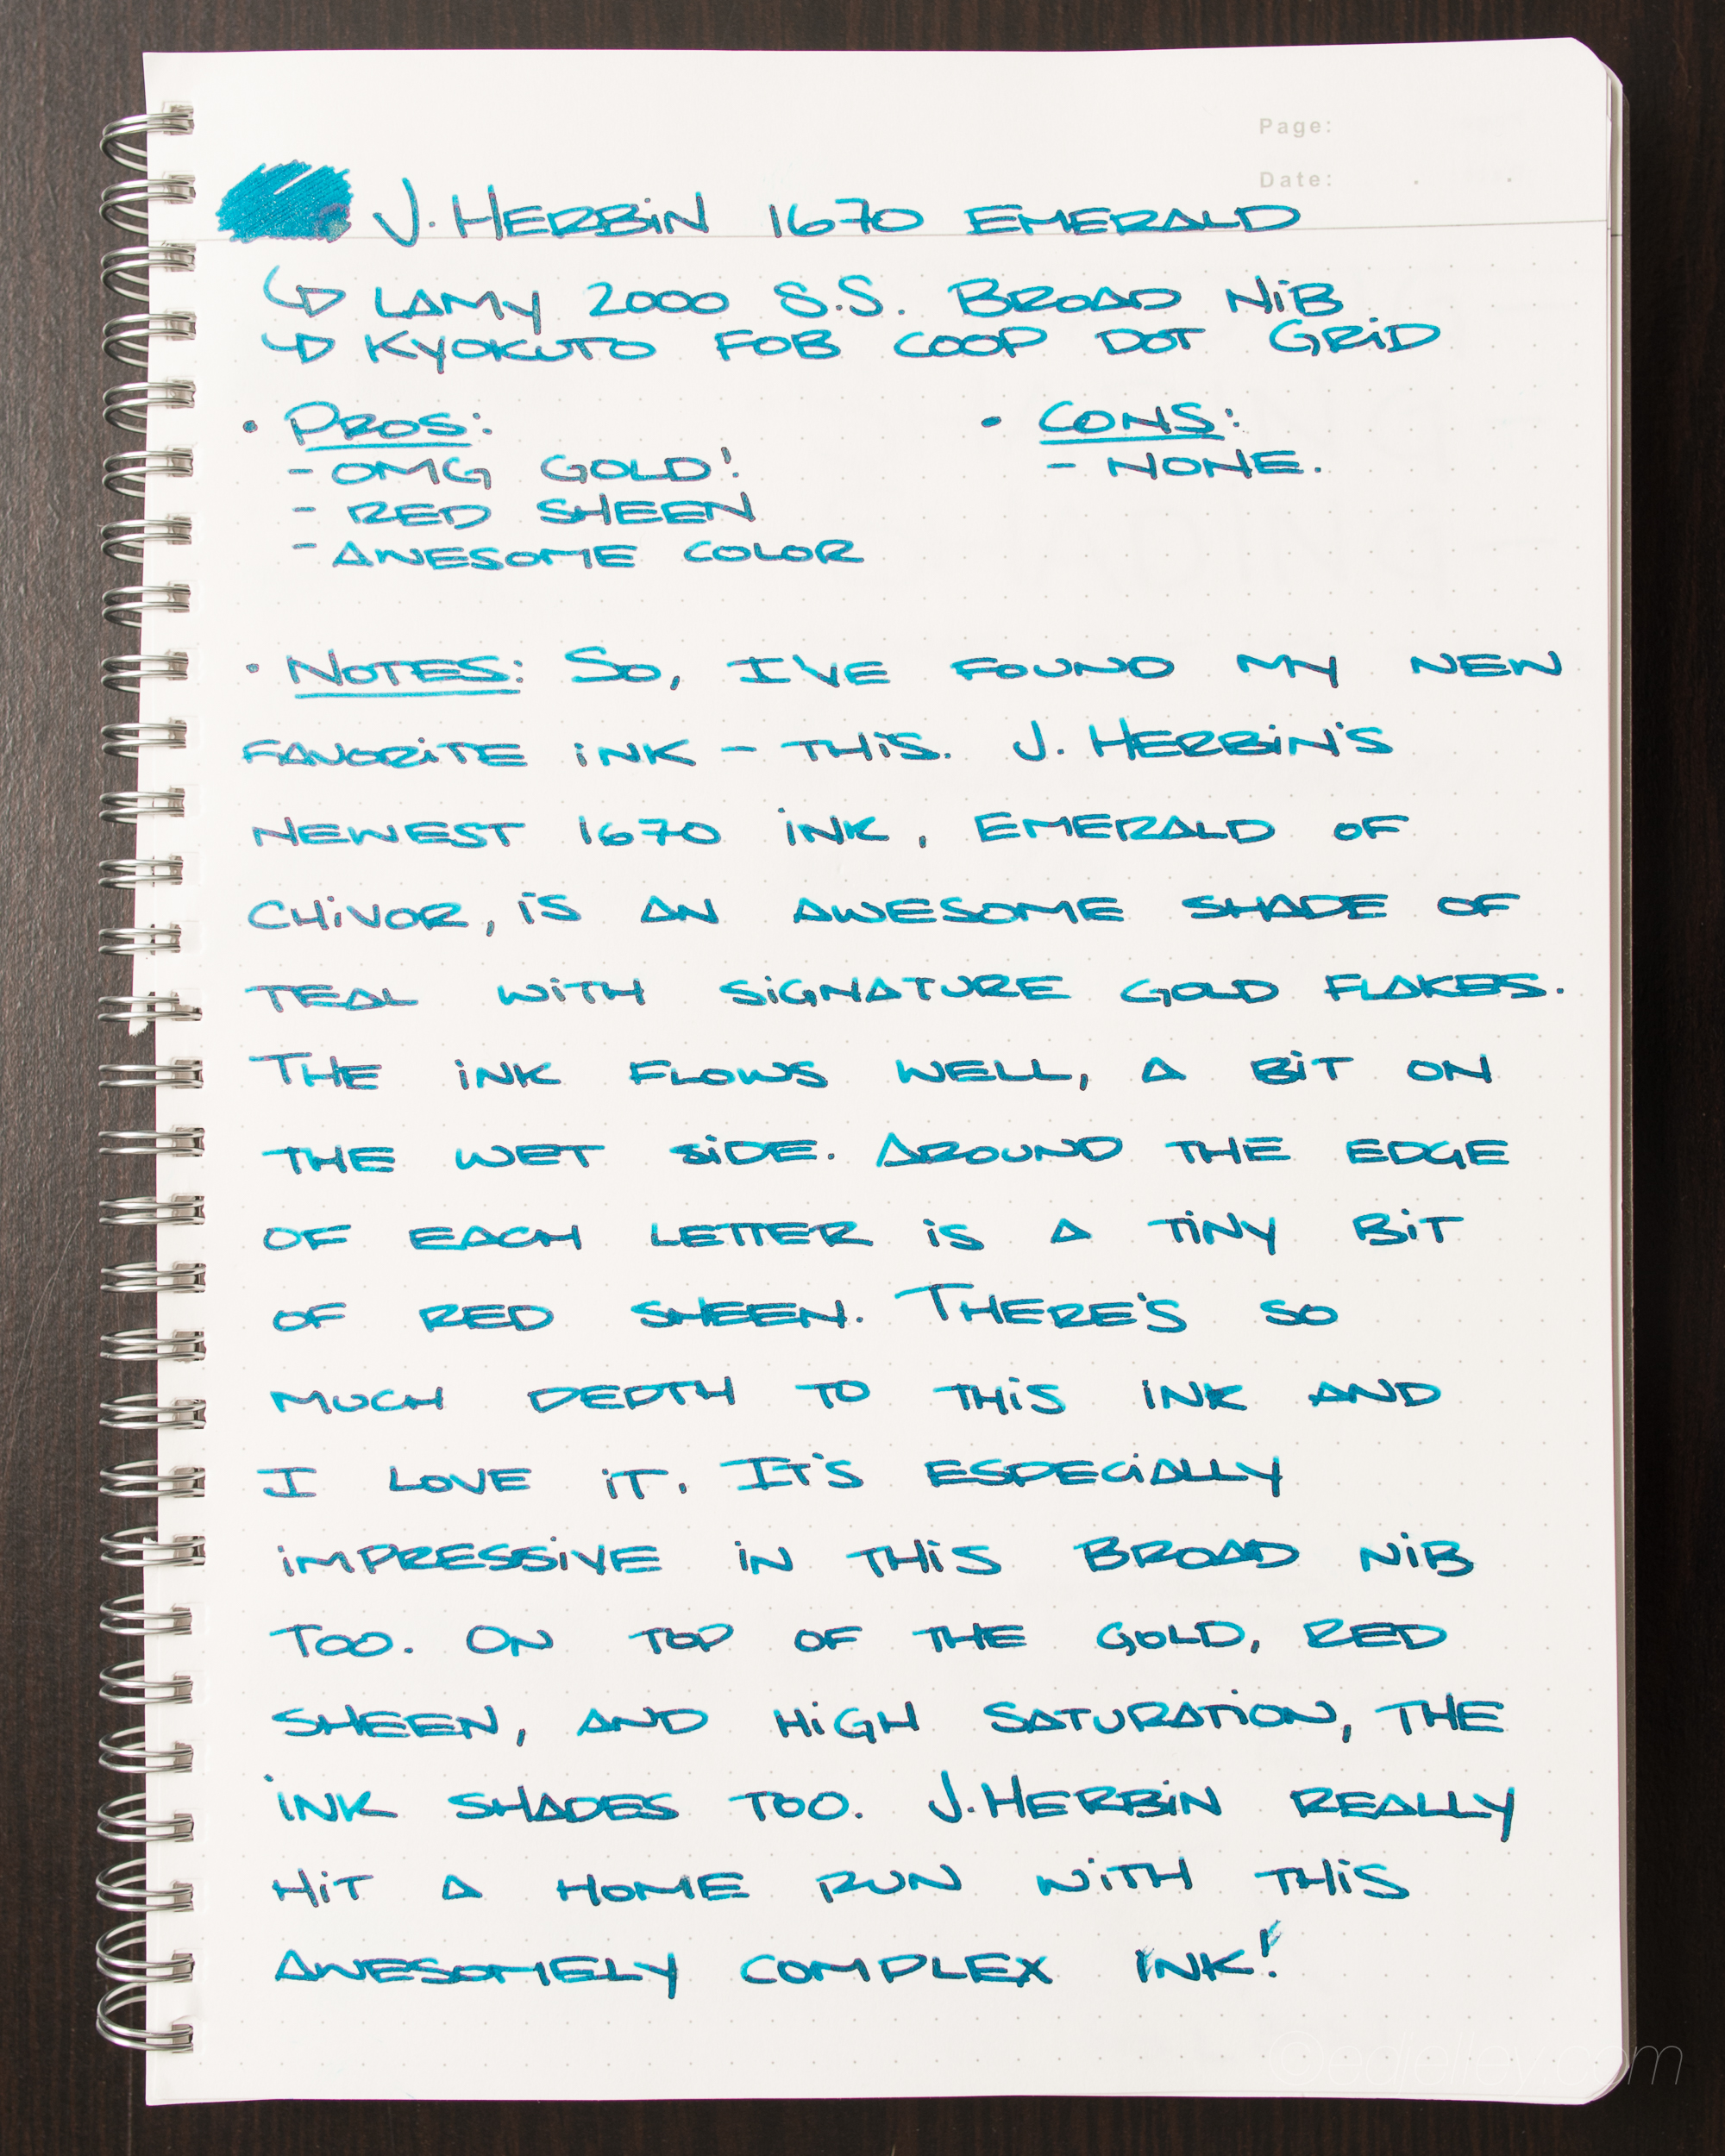 Page:
Date: . .
J. HERBiN 1670 EMERALD
↳ LAMY 2000 S.S. BROAD NiB
↳ KYOKUTO FOB COOP DOT GRiD
• PROS:
- OMG GOLD!
- RED SHEEN
- AWESOME COLOR
• CONS:
- NONE.
• NOTES: SO, I'VE FOUND MY NEW
FAVORiTE iNK - THiS. J. HERBiN'S
NEWEST 1670 iNK, EMERALD OF
CHiVOR, iS AN AWESOME SHADE OF
TEAL WiTH SiGNATURE GOLD FLAKES.
THE iNK FLOWS WELL, A BiT ON
THE WET SiDE. AROUND THE EDGE
OF EACH LETTER iS A TiNY BiT
OF RED SHEEN. THERE'S SO
MUCH DEPTH TO THiS iNK AND
I LOVE iT. IT'S ESPECiALLY
iMPRESSiVE iN THiS BROAD NiB
TOO. ON TOP OF THE GOLD, RED
SHEEN, AND HiGH SATURATiON, THE
iNK SHADES TOO. J. HERBiN REALLY
HiT A HOME RUN WiTH THiS
AWESOMELY COMPLEX iNK!
©edjelley.com